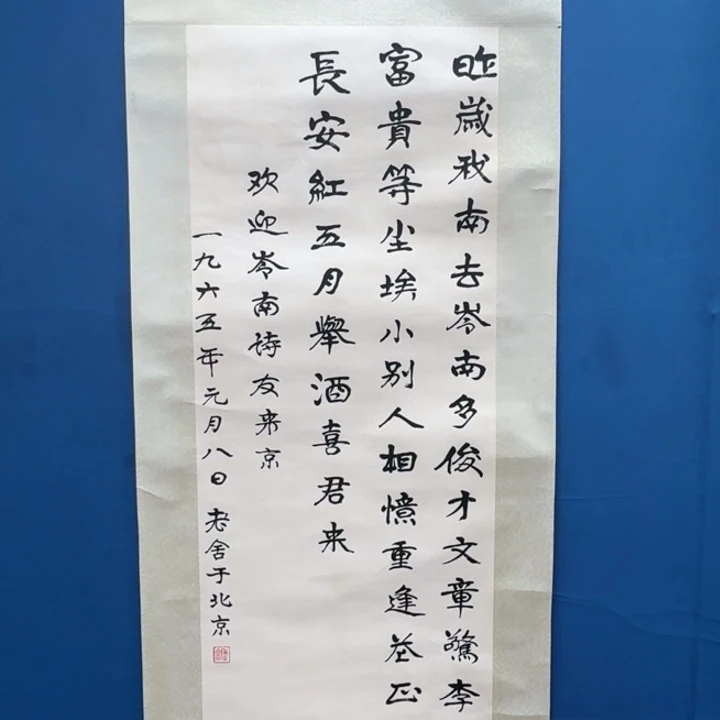 昨歲我南去岺南多俊才文章驚李
富貴等尘埃小别人相憶重逢花正
長安紅五月舉酒喜君来
欢迎岺南诗友来京
一九六五年元月八日 老舍于北京